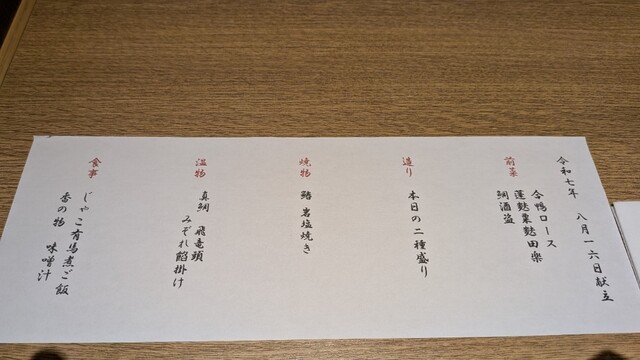 令和七年 八月一六日献立
前菜
合鴨ロース
蓬麩粟麩田楽
鯛酒盗
造り
本日の二種盛り
焼物
鰆岩塩焼き
温物
真鯛 飛竜頭
みぞれ餡掛け
食事
じゃこ有馬煮ご飯
香の物 味噌汁